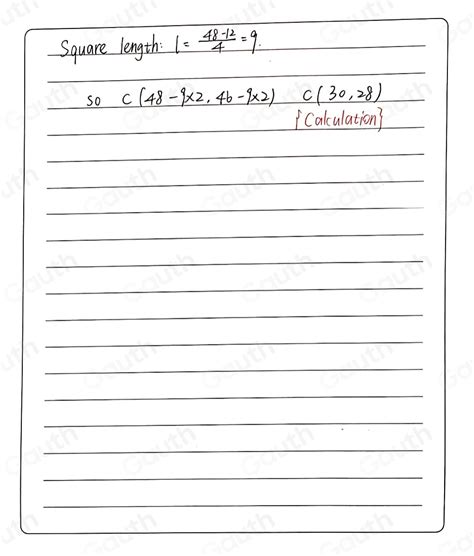 Square length: l = \frac{48-12}{4} = 9.
so C (48-9×2, 46-9×2) C (30, 28)
{Calculation}